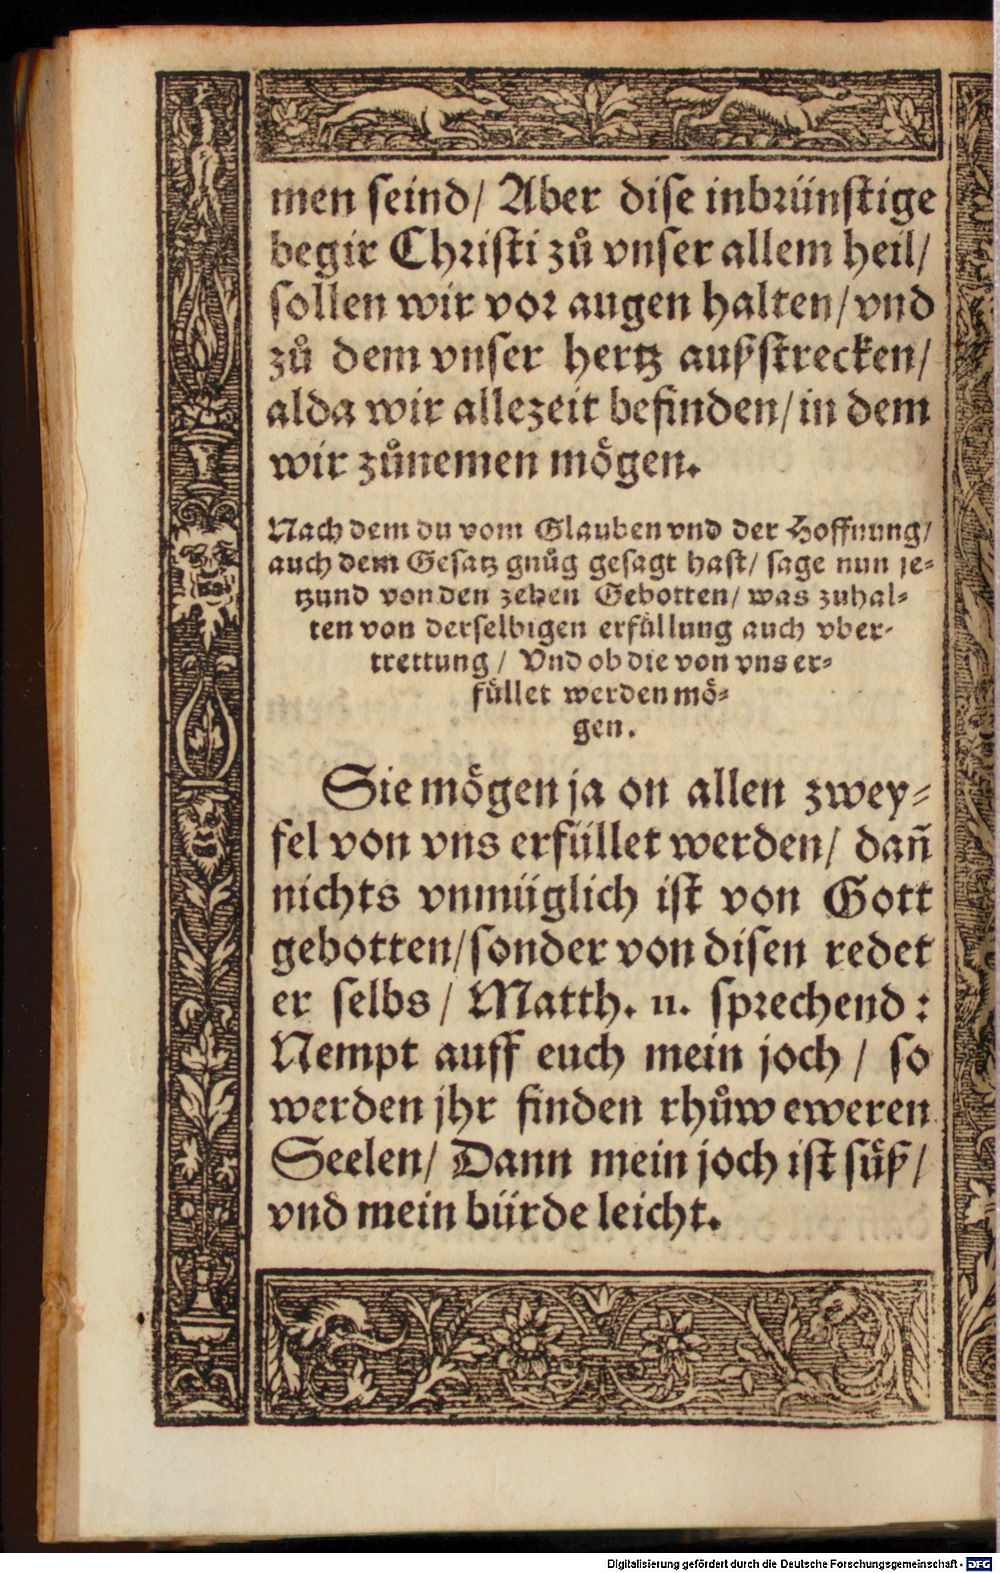 men seind/ Aber dise inbrünstige
begir Christi zů vnser allem heil/
sollen wir vor augen halten/vnd
zů dem vnser hertz außstrecken/
alda wir allezeit befinden/in dem
wir zůnemen mögen.
Nach dem du vom Glauben vnd der Hoffnung/
auch dem Gesatz gnůg gesagt hast/ sage nun je=
tzund von den zehen Gebotten/ was zuhal=
ten von derselbigen erfüllung auch vber-
trettung / Vnd ob die von vns er=
füllet werden mö=
gen.
Sie mögen ja on allen zwey=
fel von vns erfüllet werden/ dañ
nichts vnmüglich ist von Gott
gebotten/sonder von disen redet
er selbs / Matth. 11. sprechend :
Nempt auff euch mein joch / so
werden jhr finden rhůw eweren
Seelen/ Dann mein joch ist süß/
vnd mein bürde leicht.
Digitalisierung gefördert durch die Deutsche Forschungsgemeinschaft - DFG